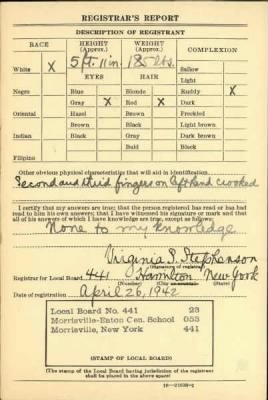 REGISTRAR'S REPORT
DESCRIPTION OF REGISTRANT
RACE HEIGHT (Approx.) WEIGHT (Approx.) COMPLEXION
5 ft. 11 in. 185 lbs.
White X Sallow
EYES HAIR Light
Negro Blue Blonde Ruddy X
Gray X Red X Dark
Oriental Hazel Brown Freckled
Indian Brown Black Light brown
Black Gray Dark brown
Filipino Bald Black
Other obvious physical characteristics that will aid in identification
Second and third fingers on left hand crooked
I certify that my answers are true; that the person registered has read or has had
read to him his own answers; that I have witnessed his signature or mark and that
all of his answers of which I have knowledge are true, except as follows:
None to my knowledge
Virginia S. Stephenson
(Signature of registrar)
Registrar for Local Board 441 Hamilton New York
(Number) (City or county) (State)
Date of registration April 26, 1942
Local Board No. 441 23
Morrisville-Eaton Cen. School 053
Morrisville, New York 441
(STAMP OF LOCAL BOARD)
(The stamp of the Local Board having jurisdiction of the registrant
shall be placed in the above space)